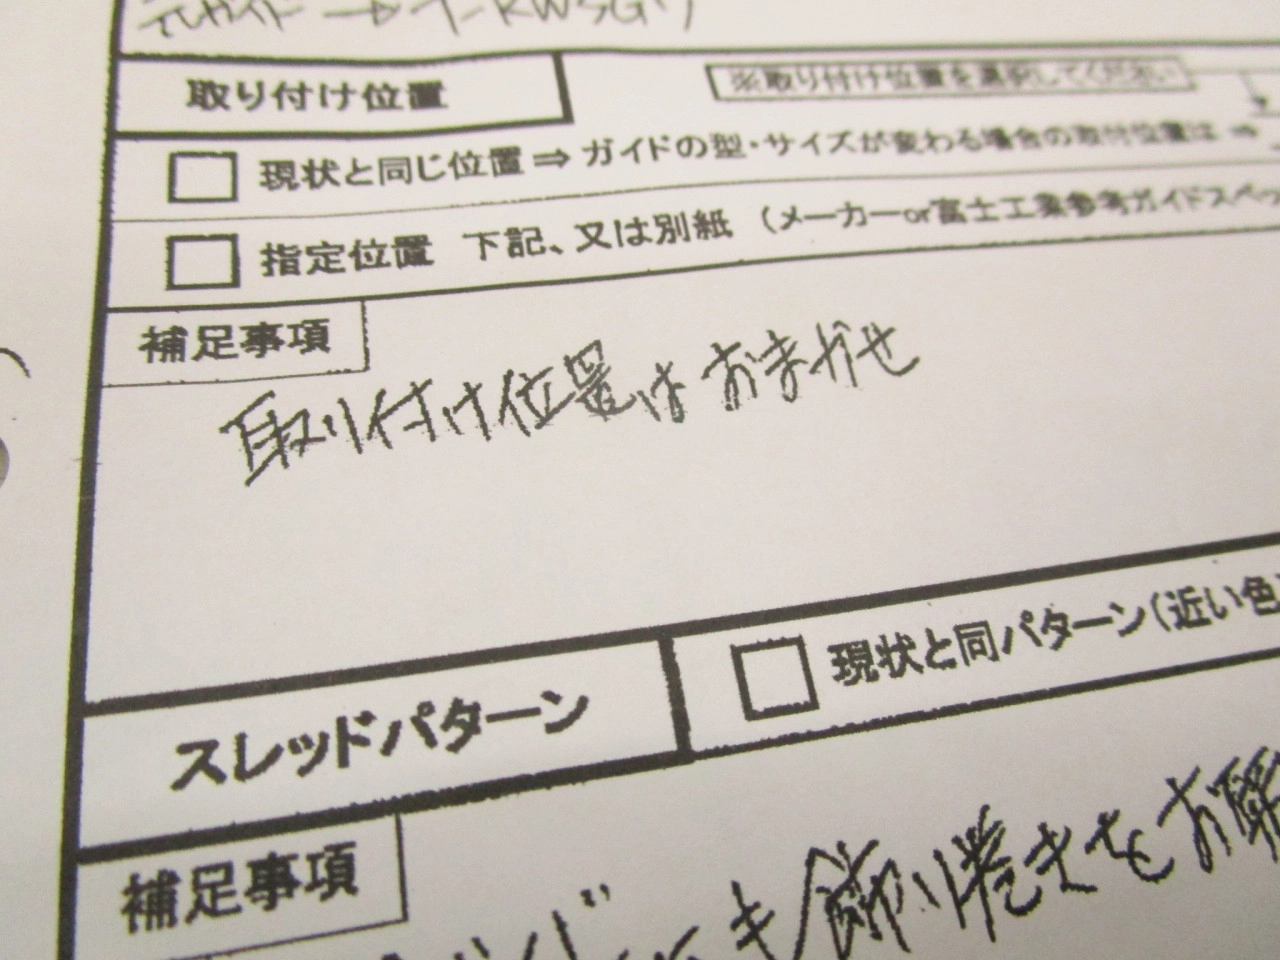 元ガイド→T-KWSG
取り付け位置
※取り付け位置を選択してください
現状と同じ位置⇒ガイドの型・サイズが変わる場合の取付位置は⇒
指定位置 下記、又は別紙（メーカーor富士工業参考ガイドスペッ
補足事項
取り付け位置はおまかせ
スレッドパターン
現状と同パターン（近い色
補足事項
にも飾り巻きをお